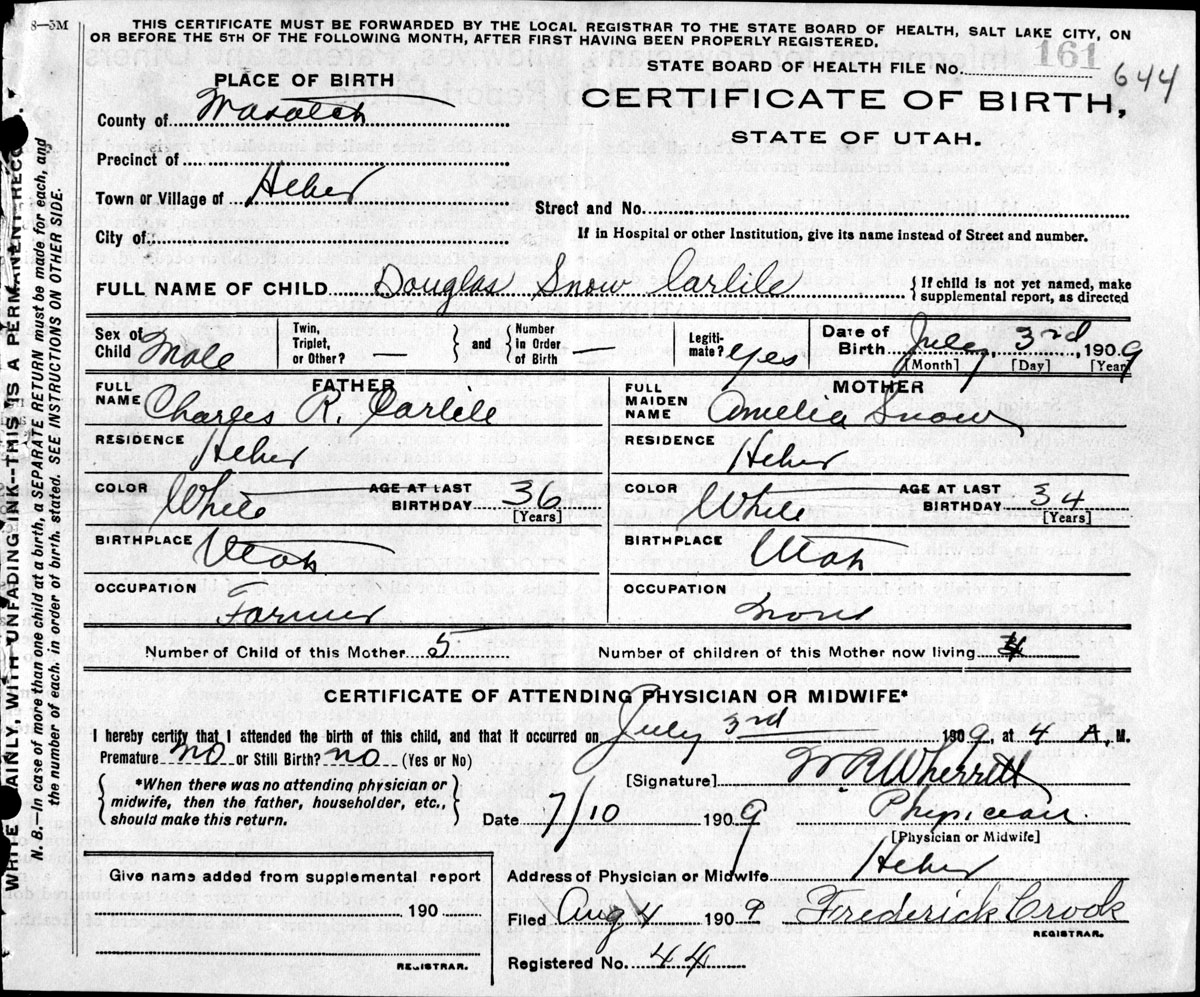 8—5M
THIS CERTIFICATE MUST BE FORWARDED BY THE LOCAL REGISTRAR TO THE STATE BOARD OF HEALTH, SALT LAKE CITY, ON
OR BEFORE THE 5TH OF THE FOLLOWING MONTH, AFTER FIRST HAVING BEEN PROPERLY REGISTERED.
STATE BOARD OF HEALTH FILE No. 161 644
CERTIFICATE OF BIRTH,
STATE OF UTAH.
PLACE OF BIRTH
County of Wasatch
Precinct of
Town or Village of Heber
Street and No.
City of
If in Hospital or other Institution, give its name instead of Street and number.
FULL NAME OF CHILD Douglas Snow Carlile { If child is not yet named, make
supplemental report, as directed
Sex of Child Male
Twin, Triplet, or Other? —
} and { Number in Order of Birth —
Legiti-mate? Yes
Date of Birth July, 3rd, 1909
[Month] [Day] [Year]
FATHER
FULL NAME Charles R. Carlile
RESIDENCE Heber
COLOR White AGE AT LAST BIRTHDAY 36 [Years]
BIRTHPLACE Utah
OCCUPATION Farmer
MOTHER
FULL MAIDEN NAME Amelia Snow
RESIDENCE Heber
COLOR White AGE AT LAST BIRTHDAY 34 [Years]
BIRTHPLACE Utah
OCCUPATION None
Number of Child of this Mother 5 Number of children of this Mother now living 4
CERTIFICATE OF ATTENDING PHYSICIAN OR MIDWIFE*
I hereby certify that I attended the birth of this child, and that it occurred on July 3rd 1909, at 4 A. M.
Premature no or Still Birth? no (Yes or No)
[Signature] W R Wherritt
{ *When there was no attending physician or
midwife, then the father, householder, etc.,
should make this return. }
Date 7/10 1909 Physician
[Physician or Midwife]
Address of Physician or Midwife Heber
Filed Aug 4 1909 Frederick Crook
REGISTRAR.
Registered No. 44
Give name added from supplemental report
190
REGISTRAR.
WRITE AINLY, WITH UNFADING INK--THIS IS A PERMANENT RECO
N. B.—In case of more than one child at a birth, a SEPARATE RETURN must be made for each, and
the number of each, in order of birth, stated. SEE INSTRUCTIONS ON OTHER SIDE.